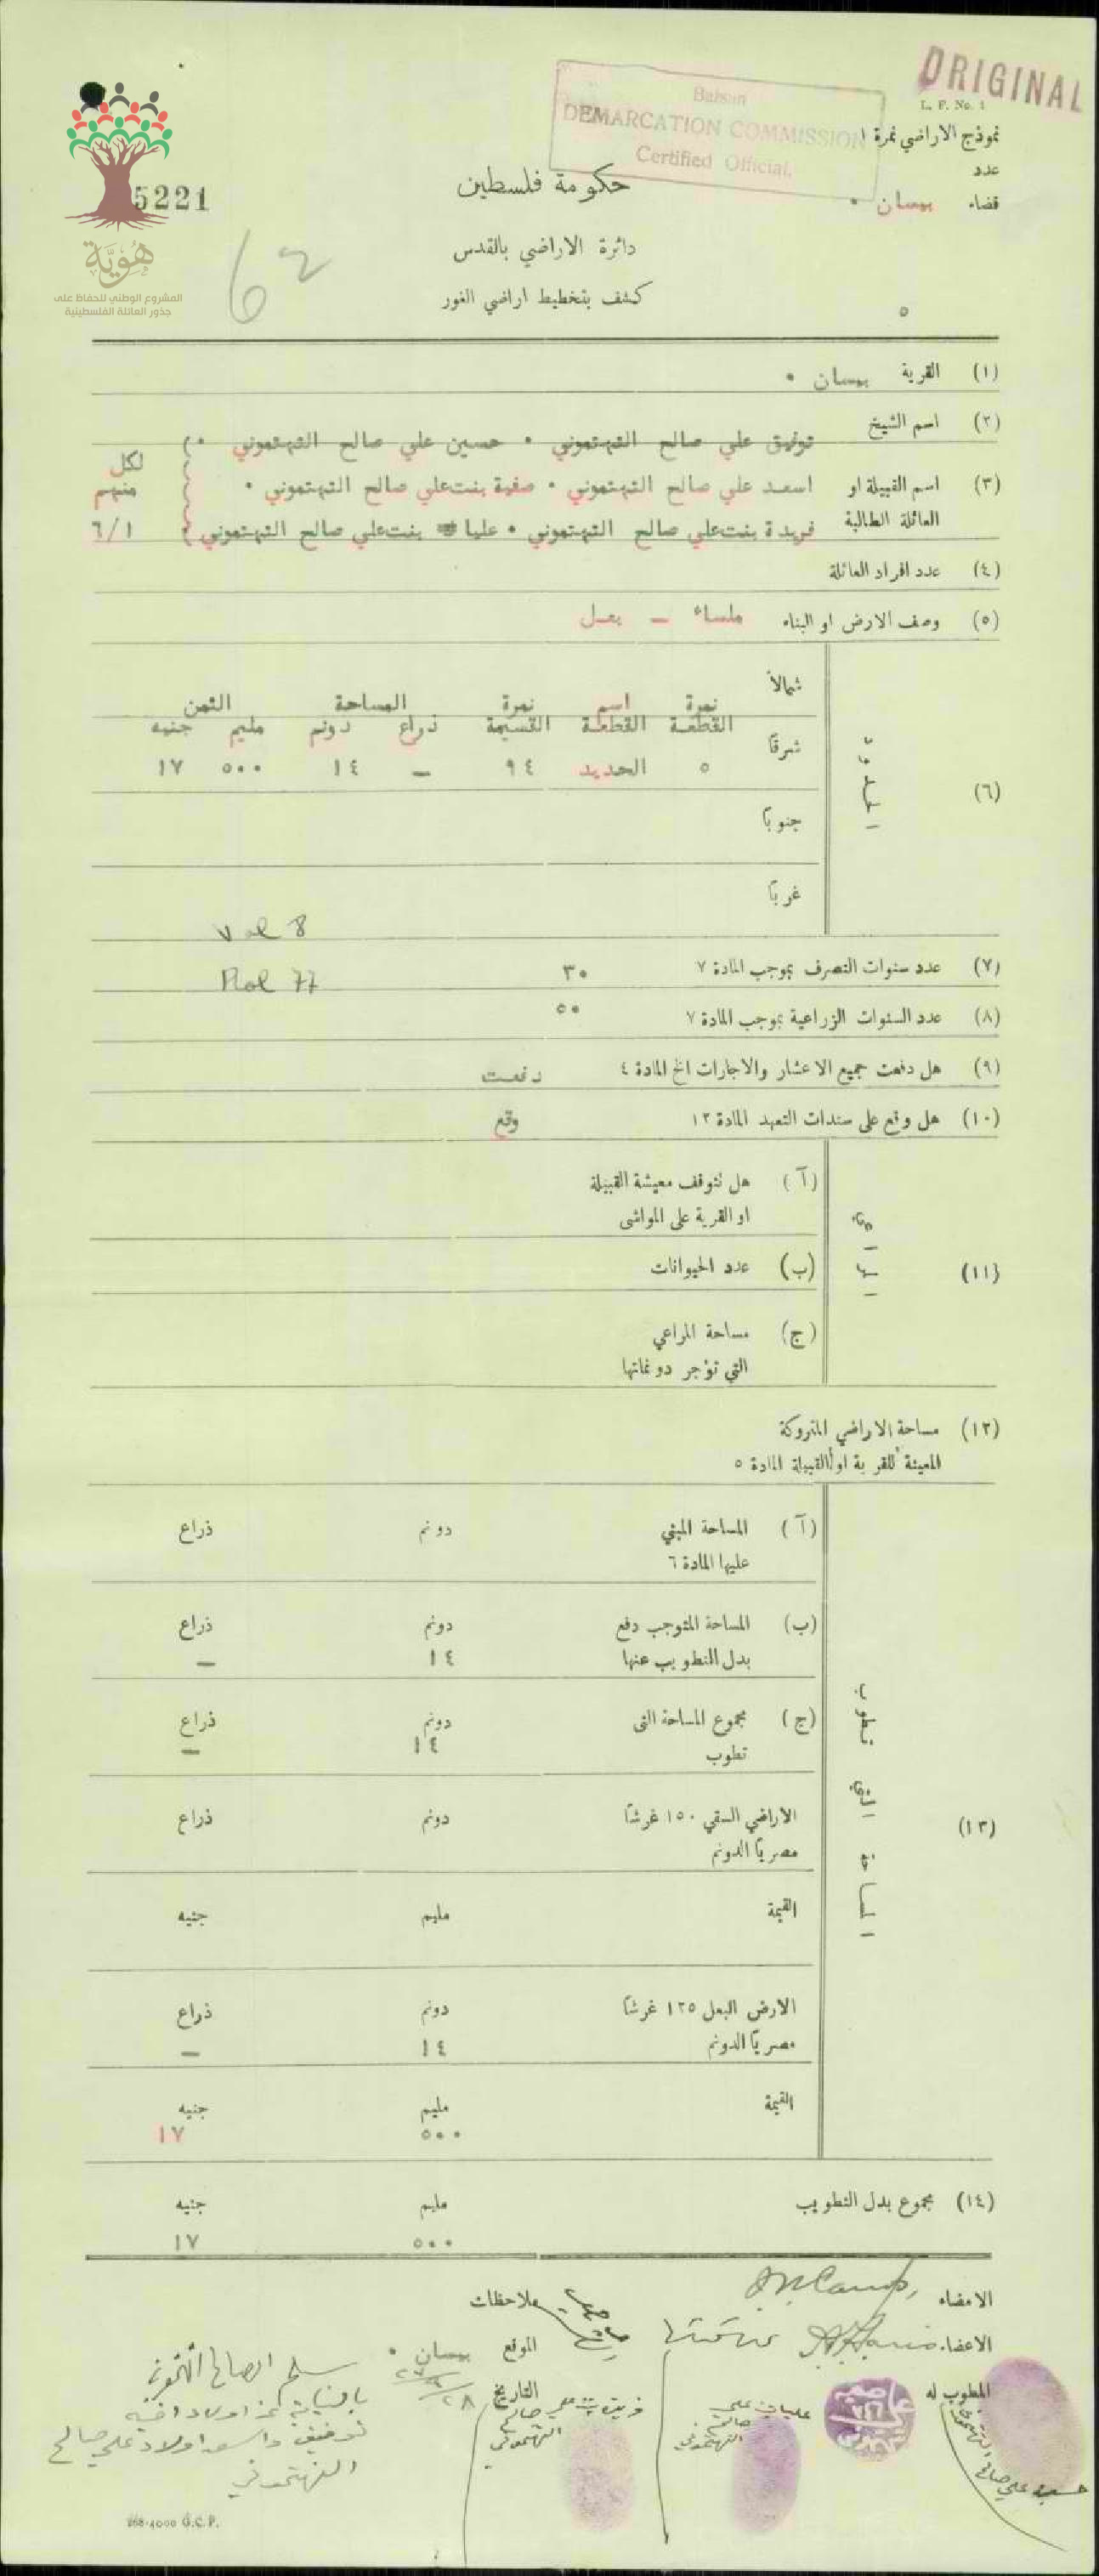 ORIGINAL
L. F. No. 1
Baisan
DEMARCATION COMMISSION
Certified Official.
نموذج الاراضي نمرة ١
عدد
قضاء بيسان •
5221
حكومة فلسطين
دائرة الاراضي بالقدس
كشف بتخطيط اراضي الغور
62
هُوِيَّة
المشروع الوطني للحفاظ على
جذور العائلة الفلسطينية
(١) القرية بيسان •
(٢) اسم الشيخ
توفيق علي صالح التهتموني • حسين علي صالح التهتموني •
(٣) اسم القبيلة او اسعد علي صالح التهتموني • صفية بنت علي صالح التهتموني • لكل منهم
العائلة الطالبة فريدة بنت علي صالح التهتموني • عليا بنت علي صالح التهتموني ٦/١
(٤) عدد افراد العائلة
(٥) وصف الارض او البناء ملساء — بعل
(٦) الحدود
شمالاً
نمرة اسم نمرة المساحة الثمن
القطعة القطعة القسيمة ذراع دونم مليم جنيه
شرقاً
٥ الحديد ٩٤ — ١٤ ٥٠٠ ١٧
جنوباً
غرباً
Vol 8
(٧) عدد سنوات التصرف بموجب المادة ٧ ٣٠
Fol 77
(٨) عدد السنوات الزراعية بموجب المادة ٧ ٥٠
(٩) هل دفعت جميع الاعشار والاجارات الخ المادة ٤ دفعت
(١٠) هل وقع على سندات التعهد المادة ١٢ وقع
(١١) المراعي
(آ) هل تتوقف معيشة القبيلة
او القرية على المواشي
(ب) عدد الحيوانات
(ج) مساحة المراعي
التي تؤجر دونماتها
(١٢) مساحة الاراضي المتروكة
المعينة للقرية او القبيلة المادة ٥
(١٣) المساحة التي تطوب
(آ) المساحة المبني دونم ذراع
عليها المادة ٦
(ب) المساحة المتوجب دفع دونم ذراع
بدل التطويب عنها ١٤ —
(ج) مجموع المساحة التي دونم ذراع
تطوب ١٤ —
الاراضي السقي ١٥٠ غرشاً دونم ذراع
مصرياً الدونم
القيمة مليم جنيه
الارض البعل ١٢٥ غرشاً دونم ذراع
مصرياً الدونم ١٤ —
القيمة مليم جنيه
٥٠٠ ١٧
(١٤) مجموع بدل التطويب مليم جنيه
٥٠٠ ١٧
الامضاء
ملاحظات
الاعضاء
الموقع بيسان •
المطوب له
التاريخ
عليا بنت علي
صالح
التهتموني
فريدة بنت علي
صالح
التهتموني
علي صالح التهتموني
توفيق واسعد اولاد علي صالح
التهتموني
268-4000 G.C.P.